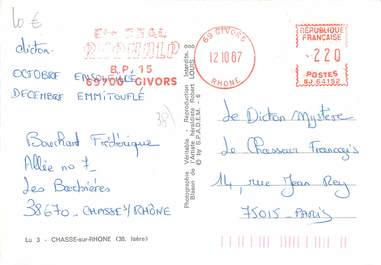 10 €
dicton:
OCTOBRE ENSOLEILLÉ
DECEMBRE EMMITOUFLÉ
B.P. 15
69700 GIVORS
69 GIVORS
12 10 87
RHONE
RÉPUBLIQUE
FRANÇAISE
220
POSTES
38
Bouchard Frédérique
Allée no 7
Les Barbières
38670 - CHASSE s/ RHÔNE
Lu 3 - CHASSE-sur-RHONE (38. Isère)
Photographie Véritable - Reproduction Interdite.
Blason de l'Artiste héraldiste Robert LOUIS
© by S.P.A.D.E.M. - 6
Le Dicton Mystère
Le Chasseur Français
14, rue Jean Rey
75015 - PARIS